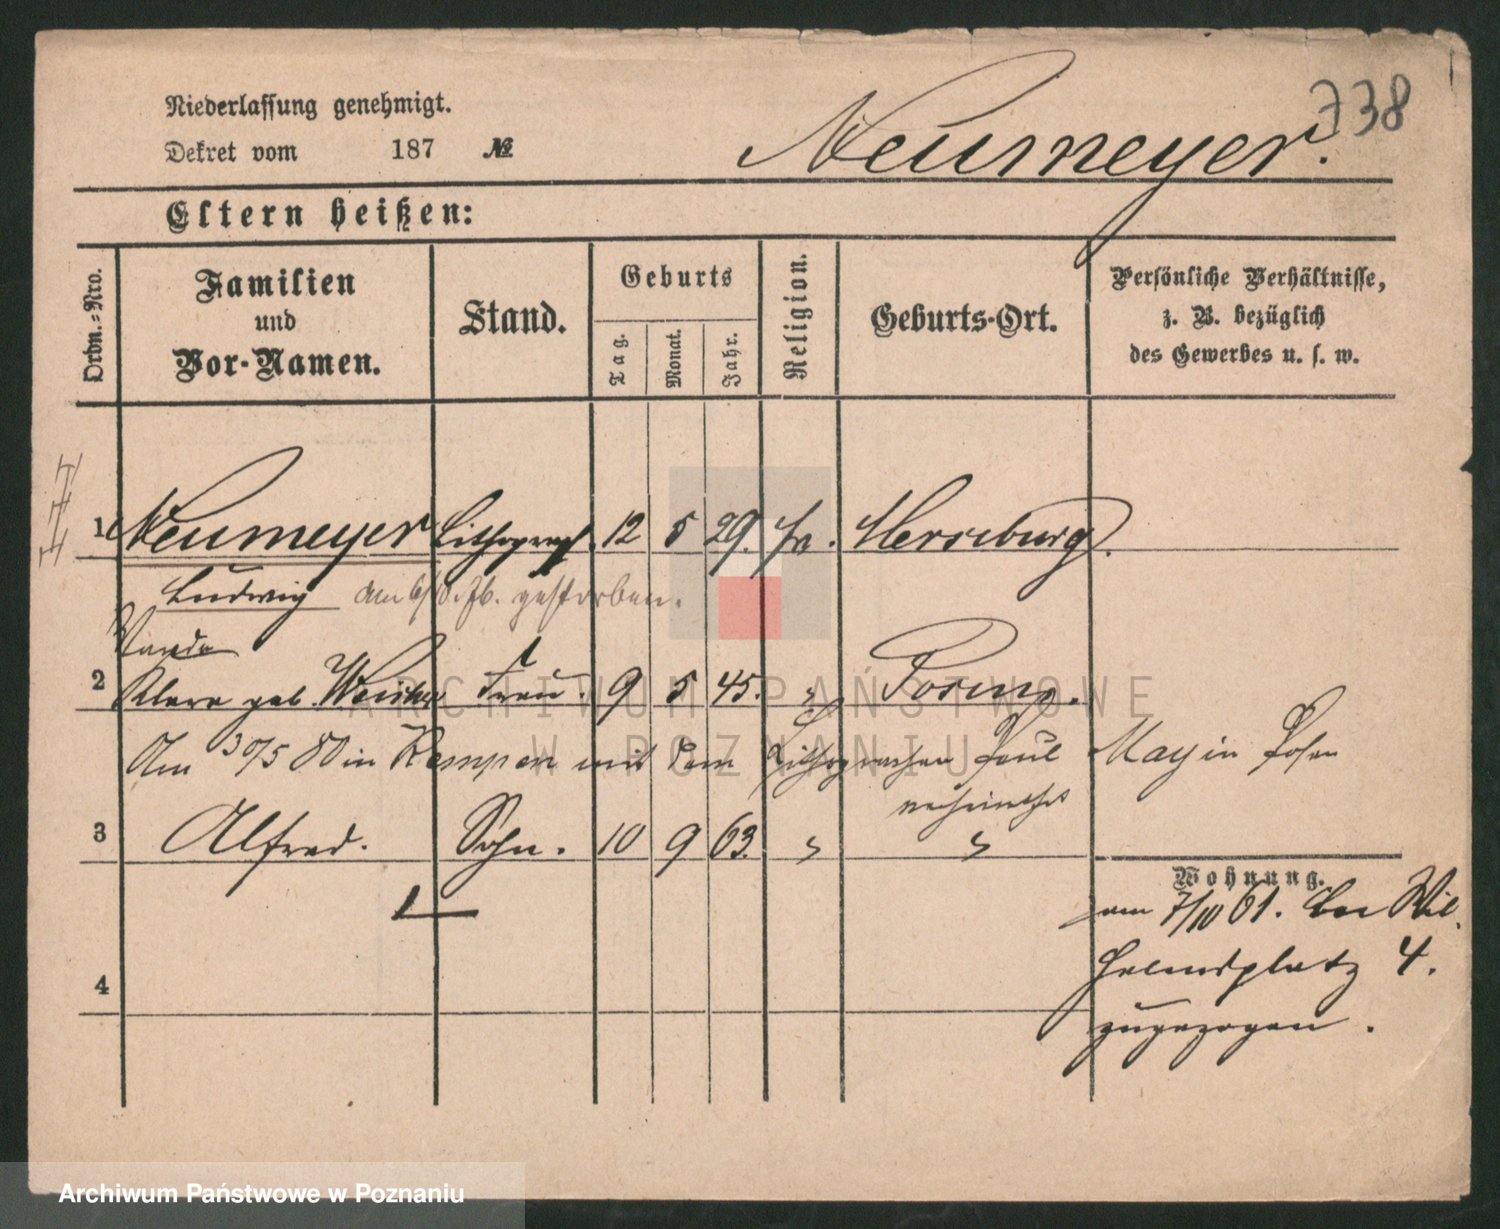 738
Niederlassung genehmigt.
Neumeyer.
Dekret vom 187 №
Eltern heißen:
Ordn.-Nro.
Familien und Vor-Namen.
Stand.
Geburts
Tag.
Monat.
Jahr.
Religion.
Geburts-Ort.
Persönliche Verhältnisse,
z. B. bezüglich
des Gewerbes u. s. w.
1 Neumeyer Lithograph. 12 5 29. Merseburg.
Ludwig am 6/8. 76. gestorben.
Wanda
2 Klara geb. Frau. 9 5 45. " Posen.
Am 30/5 80 in Kempen mit dem Lithographen Paul May in Posen
verheirathet
3 Alfred. Sohn. 10 9 63. " "
Wohnung.
am 7/10 61. Wil
helmsplatz 4.
zugezogen.
4
ARCHIWUM PAŃSTWOWE
W POZNANIU
Archiwum Państwowe w Poznaniu